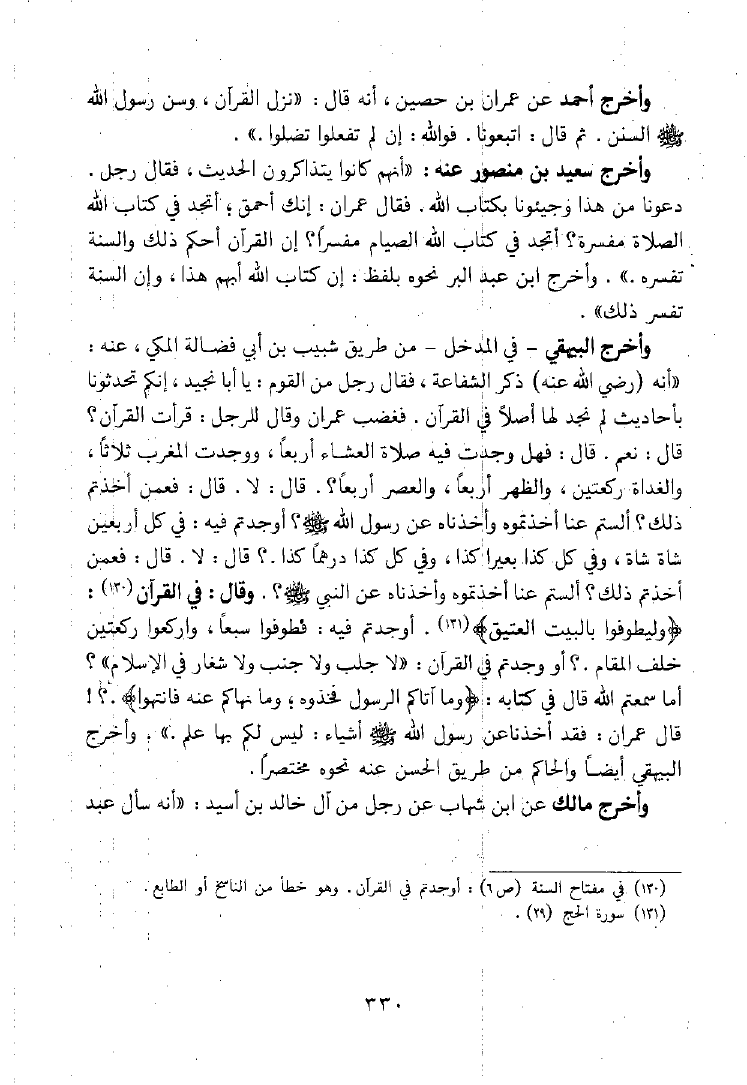 وأخرج أحمد عن عمران بن حصين ، أنه قال : «نزل القرآن ، وسن رسول الله
ﷺ السنن . ثم قال : اتبعونا . فوالله : إن لم تفعلوا تضلوا .» .
وأخرج سعيد بن منصور عنه : «أنهم كانوا يتذاكرون الحديث ، فقال رجل .
دعونا من هذا وجيئونا بكتاب الله . فقال عمران : إنك أحمق ؛ أتجد في كتاب الله
الصلاة مفسرة؟ أتجد في كتاب الله الصيام مفسراً؟ إن القرآن أحكم ذلك والسنة
تفسره .» . وأخرج ابن عبد البر نحوه بلفظ : إن كتاب الله أبهم هذا ، وإن السنة
تفسر ذلك» .
وأخرج البيهقي - في المدخل - من طريق شبيب بن أبي فضالة المكي ، عنه :
«أنه (رضي الله عنه) ذكر الشفاعة ، فقال رجل من القوم : يا أبا نجيد ، إنكم تحدثونا
بأحاديث لم نجد لها أصلاً في القرآن . فغضب عمران وقال للرجل : قرأت القرآن؟
قال : نعم . قال : فهل وجدت فيه صلاة العشاء أربعاً ، ووجدت المغرب ثلاثاً ،
والغداة ركعتين ، والظهر أربعاً ، والعصر أربعاً؟ . قال : لا . قال : فعمن أخذتم
ذلك؟ ألستم عنا أخذتموه وأخذناه عن رسول الله ﷺ؟ أوجدتم فيه : في كل أربعين
شاة شاة ، وفي كل كذا بعيرا كذا ، وفي كل كذا درهماً كذا .؟ قال : لا . قال : فعمن
أخذتم ذلك؟ ألستم عنا أخذتموه وأخذناه عن النبي ﷺ؟ . وقال : في القرآن (١٣٠) :
﴿وليطوفوا بالبيت العتيق﴾(١٣١) . أوجدتم فيه : فطوفوا سبعاً ، واركعوا ركعتين
خلف المقام .؟ أو وجدتم في القرآن : «لا جلب ولا جنب ولا شغار في الإسلام» ؟
أما سمعتم الله قال في كتابه : ﴿وما آتاكم الرسول فخذوه ؛ وما نهاكم عنه فانتهوا﴾ .؟ !
قال عمران : فقد أخذناعن رسول الله ﷺ أشياء : ليس لكم بها علم .» . وأخرج
البيهقي أيضاً والحاكم من طريق الحسن عنه نحوه مختصراً .
وأخرج مالك عن ابن شهاب عن رجل من آل خالد بن أسيد : «أنه سأل عبد
(١٣٠) في مفتاح السنة (ص٦) : أوجدتم في القرآن . وهو خطأ من الناسخ أو الطابع .
(١٣١) سورة الحج (٢٩) .
٣٣٠